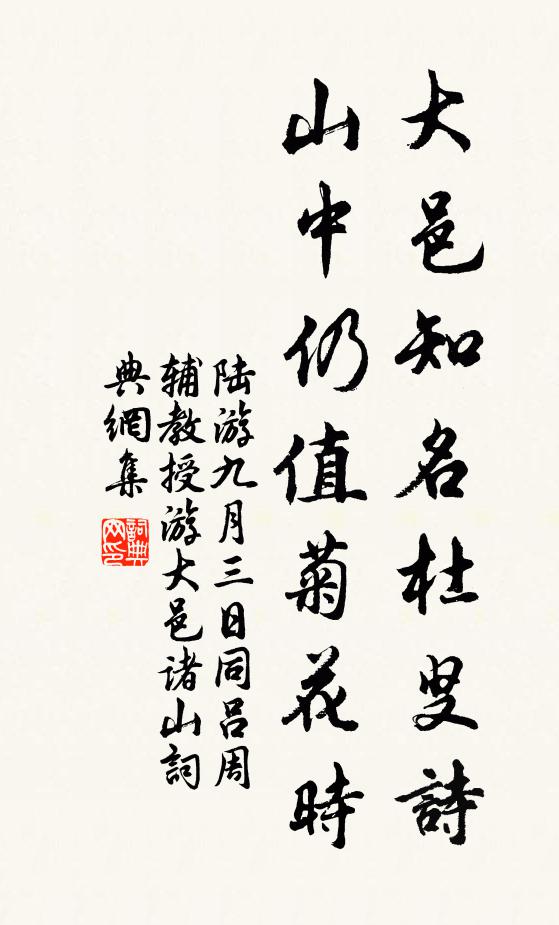 大邑知名杜叟詩
山中仍值菊花時
陆游九月三日同吕周
辅教授游大邑诸山詞
典網集
詞典
网印